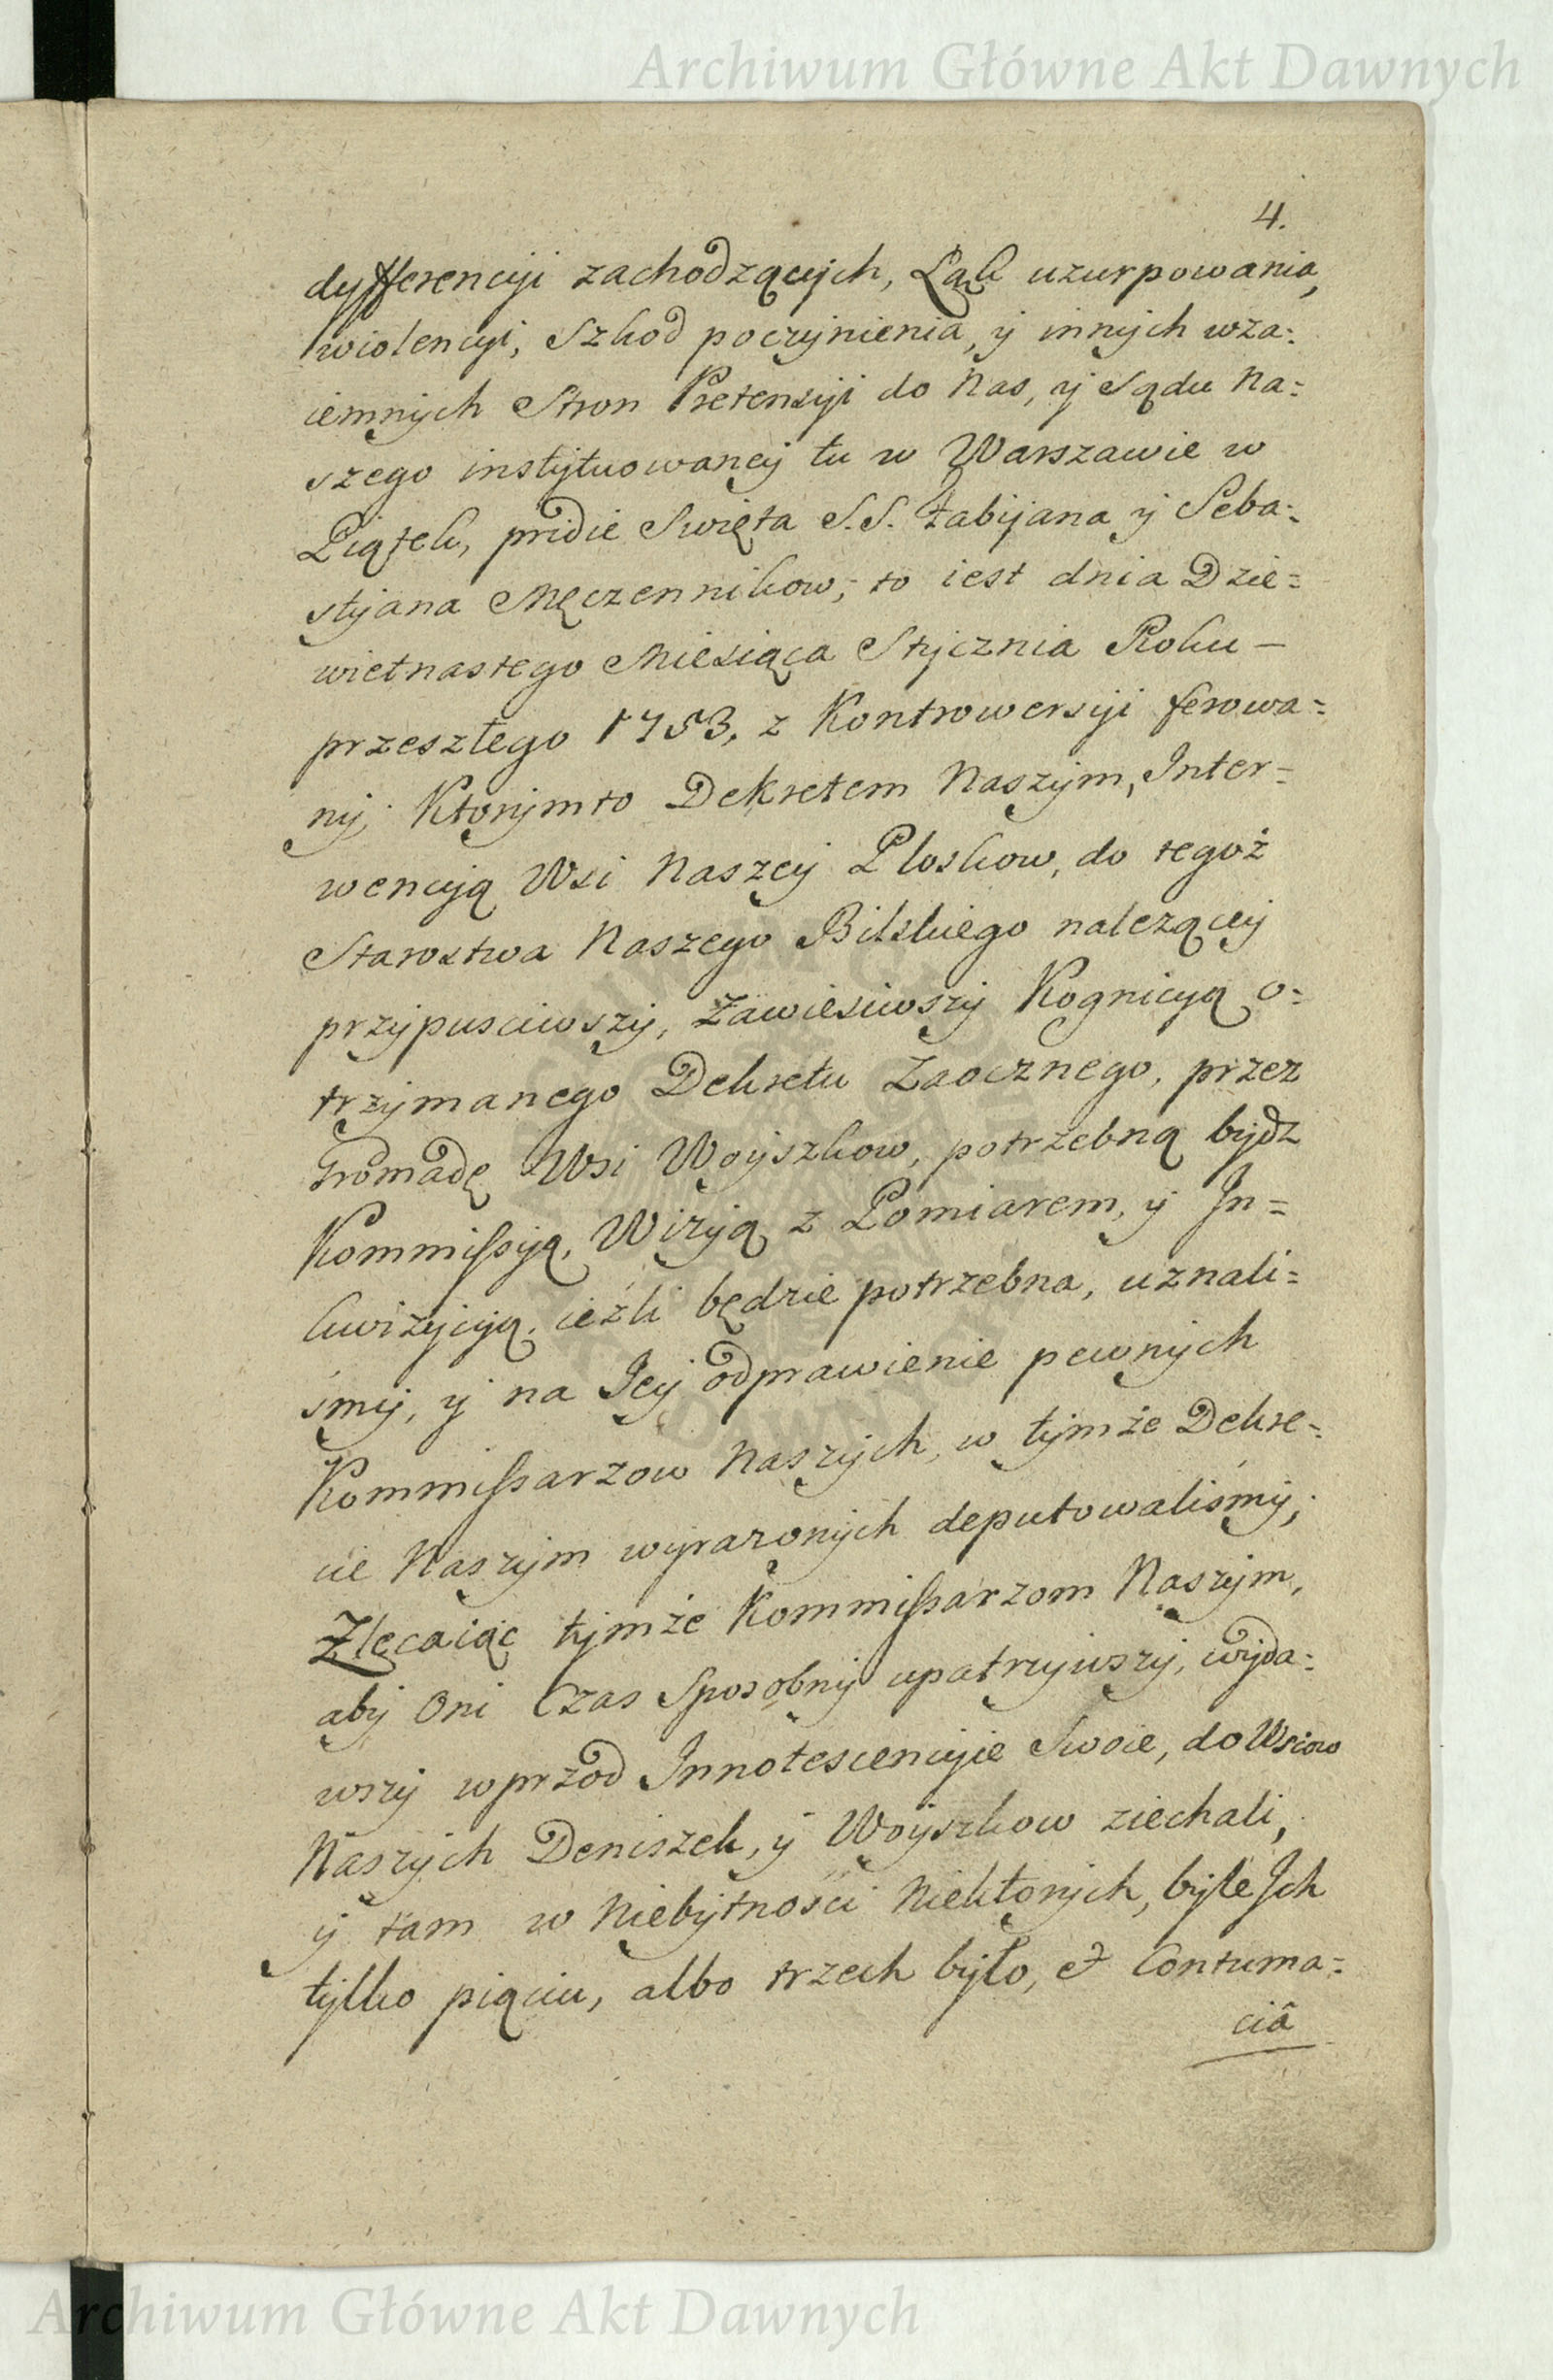 Archiwum Główne Akt Dawnych
4.
dyfferencyi zachodzących, Łąk uzurpowania,
wiolencyi, Szkod poczynienia, y innych wza=
iemnych Stron Pretensyi do Nas, y Sądu Na=
szego instytuowaney tu w Warszawie w
Piątek, pridie Swięta S.S. Fabijana y Seba=
styana Męczennikow, to iest dnia Dzie=
wietnastego Miesiąca Stycznia Roku —
przeszłego 1753, z Kontrowersyi ferowa=
ny; Ktorymto Dekretem Naszym, Inter=
wencyą Wsi Naszey Ploskow, do tegoż
Starostwa Naszego Bilskiego nalezącey
przypusciwszy, Zawiesiwszy Kognicyą o=
trzymanego Dekretu Zaocznego, przez
Gromadę Wsi Woyszkow, potrzebną bydz
Kommissyą, Wizyą z Pomiarem, y In=
kwizycyą, ieźli będzie potrzebna, uznali=
śmy, y na Jey odprawienie pewnych
Kommissarzow Naszych, w tymże Dekre=
cie Naszym wyrazonych deputowaliśmy;
Zlecaiąc tymże Kommissarzom Naszym,
aby Oni Czas Sposobny upatrzywszy, wyda=
wszy wprzod Innotescencyie Swoie, do Wsiow
Naszych Deniszek, y Woyszkow ziechali,
y tam w Niebytności Niektorych, byle Jch
tylko piąciu, albo trzech było, et Contuma=
ciâ
Archiwum Główne Akt Dawnych